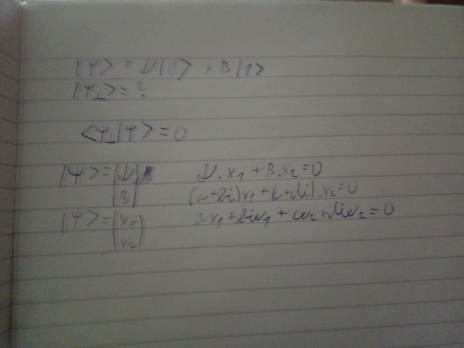 |Ψ> = α|0> + β|1>
|Ψ⊥> = ?
<Ψ⊥|Ψ> = 0
|Ψ> = (α β) α·x₁ + β·x₂ = 0
(a+bi)x₁ + (c+di)·x₂ = 0
|Ψ> = (x₁ x₂) ax₁ + bix₁ + cx₂ + dix₂ = 0